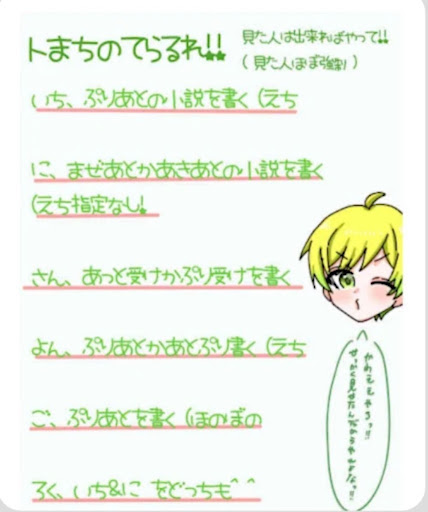 トまちのてらるれ!!
見た人は出来ればやって!!
(見た人ほぼ強制)
いち、ぷりあとの小説を書く(えち
に、まぜあとかあきあとの小説を書く
(えち指定なし!
さん、あっと受けかぷり受けを書く
よん、ぷりあとかあとぷり書く(えち
ご、ぷりあとを書く(ほのぼの
ろく、いち&に をどっちも^^